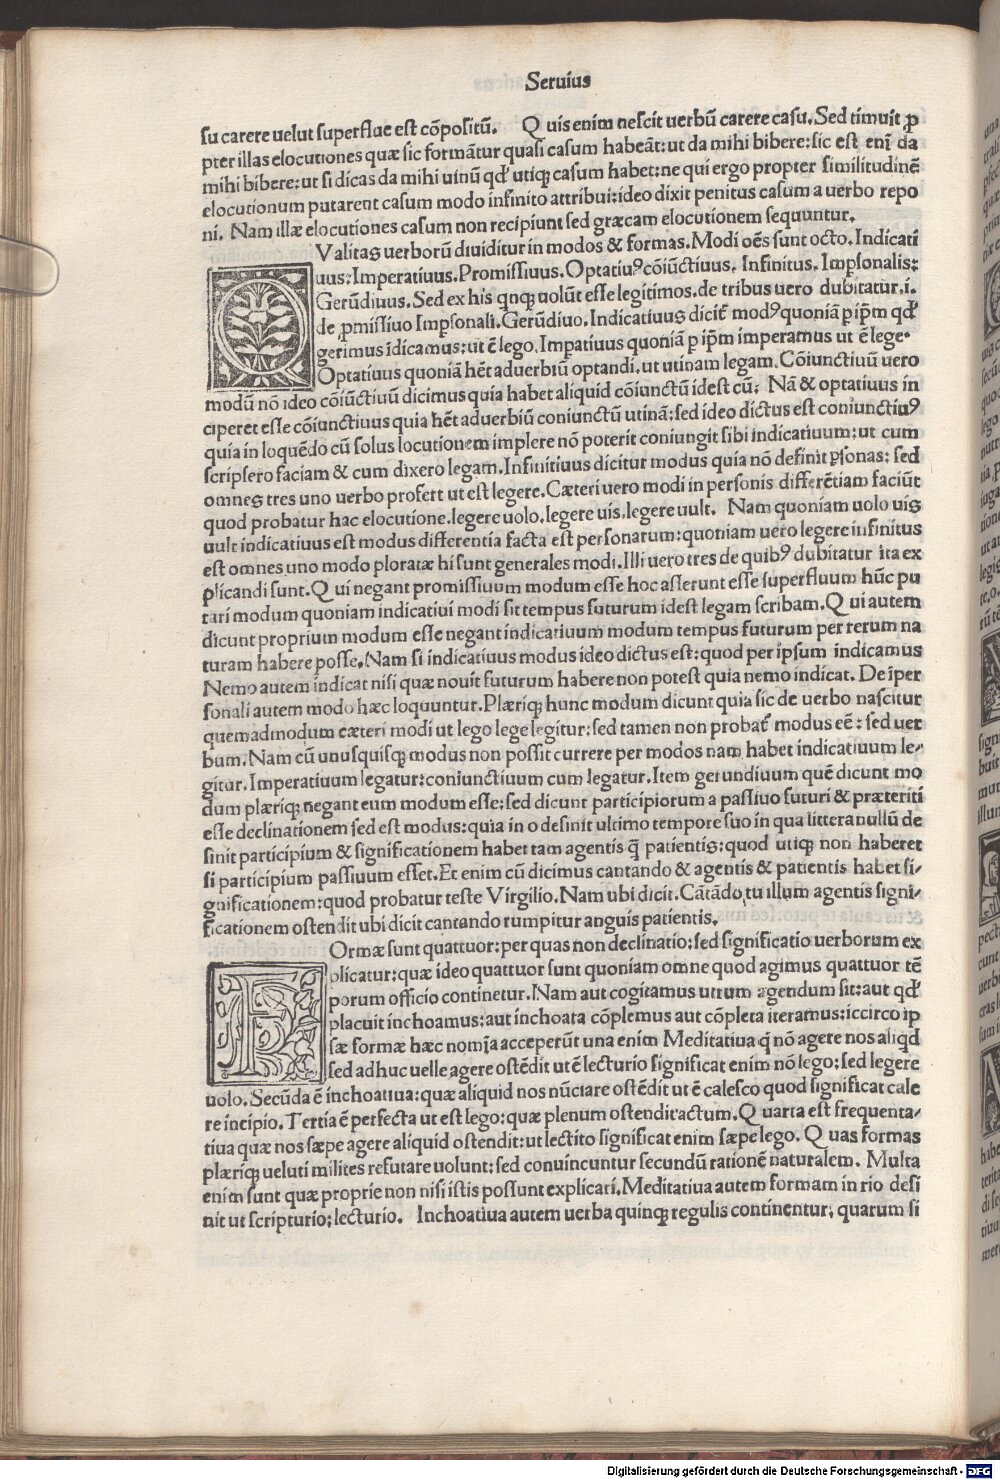 Seruius
su carere uelut superflue est cōpositū. Q uis enim nescit uerbū carere casu. Sed timuit ꝓ
pter illas elocutiones quæ sic formātur quasi casum habeāt: ut da mihi bibere: sic est enī da
mihi bibere: ut si dicas da mihi uinū qď utiqꝫ casum habet: ne qui ergo propter similitudinē
elocutionum putarent casum modo infinito attribui: ideo dixit penitus casum a uerbo repo
ni. Nam illæ elocutiones casum non recipiunt sed græcam elocutionem sequuntur.
QValitas uerborū diuiditur in modos & formas. Modi oēs sunt octo. Indicati
uus: Imperatiuus. Promissiuus. Optatiuꝰ cōiūctiuus. Infinitus. Impsonalis:
Gerūdiuus. Sed ex his qnqꝫ uolūt esse legitimos. de tribus uero dubitatur .i.
de ꝓmissiuo Impsonali. Gerūdiuo. Indicatiuus dicit̄ modꝰ quoniā ꝑ ip̄m qď
gerimus īdicamus: ut ē lego. Impatiuus quoniā ꝑ ip̄m imperamus ut ē lege.
Optatiuus quoniā hēt aduerbiū optandi. ut utinam legam. Cōiunctiuū uero
modū nō ideo cōiūctiuū dicimus quia habet aliquid cōiunctū idest cū: Nā & optatiuus in
ciperet esse cōiunctiuus quia hēt aduerbiū coniunctū utinā: sed ideo dictus est coniunctiuꝰ
quia in loquēdo cū solus locutionem implere nō poterit coniungit sibi indicatiuum: ut cum
scripsero faciam & cum dixero legam. Infinitiuus dicitur modus quia nō definit ꝑsonas: sed
omnes tres uno uerbo profert ut est legere. Cæteri uero modi in personis differētiam faciūt
quod probatur hac elocutione. legere uolo. legere uis. legere uult. Nam quoniam uolo uis
uult indicatiuus est modus differentia facta est personarum: quoniam uero legere infinitus
est omnes uno modo ploratæ hi sunt generales modi. Illi uero tres de quibꝰ dubitatur ita ex
plicandi sunt. Q ui negant promissiuum modum esse hoc asserunt esse superfluum hūc pu
tari modum quoniam indicatiui modi sit tempus futurum idest legam scribam. Q ui autem
dicunt proprium modum esse negant indicatiuum modum tempus futurum per rerum na
turam habere posse. Nam si indicatiuus modus ideo dictus est: quod per ipsum indicamus
Nemo autem indicat nisi quæ nouit futurum habere non potest quia nemo indicat. De īper
sonali autem modo hæc loquuntur. Plæriqꝫ hunc modum dicunt quia sic de uerbo nascitur
quemadmodum cæteri modi ut lego lege legitur: sed tamen non probat̄ modus eē: sed uer
bum. Nam cū unusquisqꝫ modus non possit currere per modos nam habet indicatiuum le-
gitur. Imperatiuum legatur: coniunctiuum cum legatur. Item gerundiuum quē dicunt mo
dum plæriqꝫ negant eum modum esse: sed dicunt participiorum a passiuo futuri & præteriti
esse declinationem sed est modus: quia in o desinit ultimo tempore suo in qua littera nullū de
sinit participium & significationem habet tam agentis q̄ patientis: quod utiqꝫ non haberet
si participium passiuum esset. Et enim cū dicimus cantando & agentis & patientis habet si-
gnificationem: quod probatur teste Virgilio. Nam ubi dicit. Cātādo tu illum agentis signi-
ficationem ostendit ubi dicit cantando rumpitur anguis patientis.
FOrmæ sunt quattuor: per quas non declinatio: sed significatio uerborum ex
plicatur: quæ ideo quattuor sunt quoniam omne quod agimus quattuor tē
porum officio continetur. Nam aut cogitamus utrum agendum sit: aut qď
placuit inchoamus: aut inchoata cōplemus aut cōpleta iteramus: iccirco ip
sæ formæ hæc nomīa acceperūt una enim Meditatiua q̄ nō agere nos aliqd
sed adhuc uelle agere ostēdit ut ē lecturio significat enim nō lego: sed legere
uolo. Secūda ē inchoatiua: quæ aliquid nos nūciare ostēdit ut ē calesco quod significat cale
re incipio. Tertia ē perfecta ut est lego: quæ plenum ostendit actum. Q uarta est frequenta-
tiua quæ nos sæpe agere aliquid ostendit: ut lectito significat enim sæpe lego. Q uas formas
plæriqꝫ ueluti milites refutare uolunt: sed conuincuntur secundū rationē naturalem. Multa
enim sunt quæ proprie non nisi istis possunt explicari. Meditatiua autem formam in rio desi
nit ut scripturio: lecturio. Inchoatiua autem uerba quinqꝫ regulis continentur. quarum si
Digitalisierung gefördert durch die Deutsche Forschungsgemeinschaft - DFG